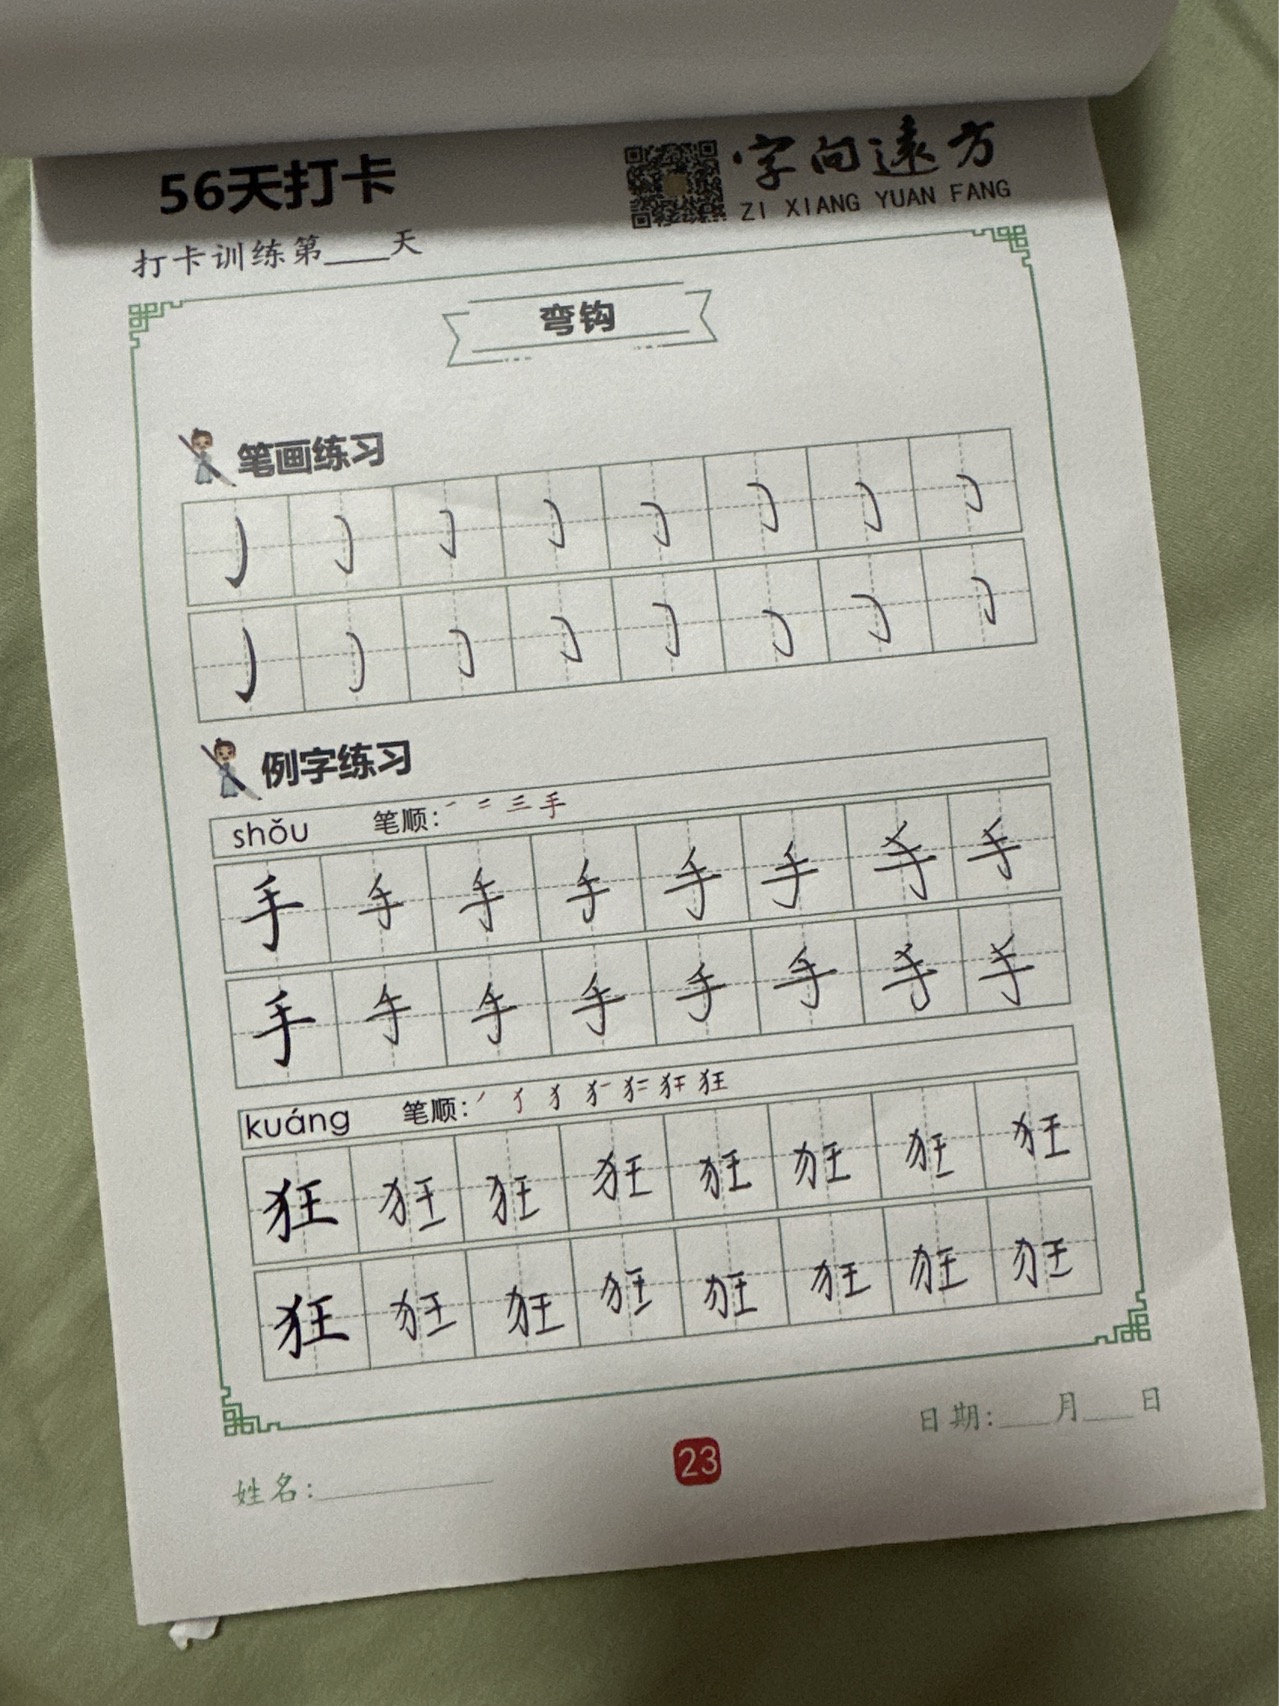 56天打卡
字向遠方
ZI XIANG YUAN FANG
打卡训练第____天
弯钩
笔画练习
例字练习
shǒu 笔顺: 手
手 手 手 手 手 手 手 手
手 手 手 手 手 手 手 手
kuáng 笔顺: 狂
狂 狂 狂 狂 狂 狂 狂 狂
狂 狂 狂 狂 狂 狂 狂 狂
日期:___月___日
姓名:__________
23